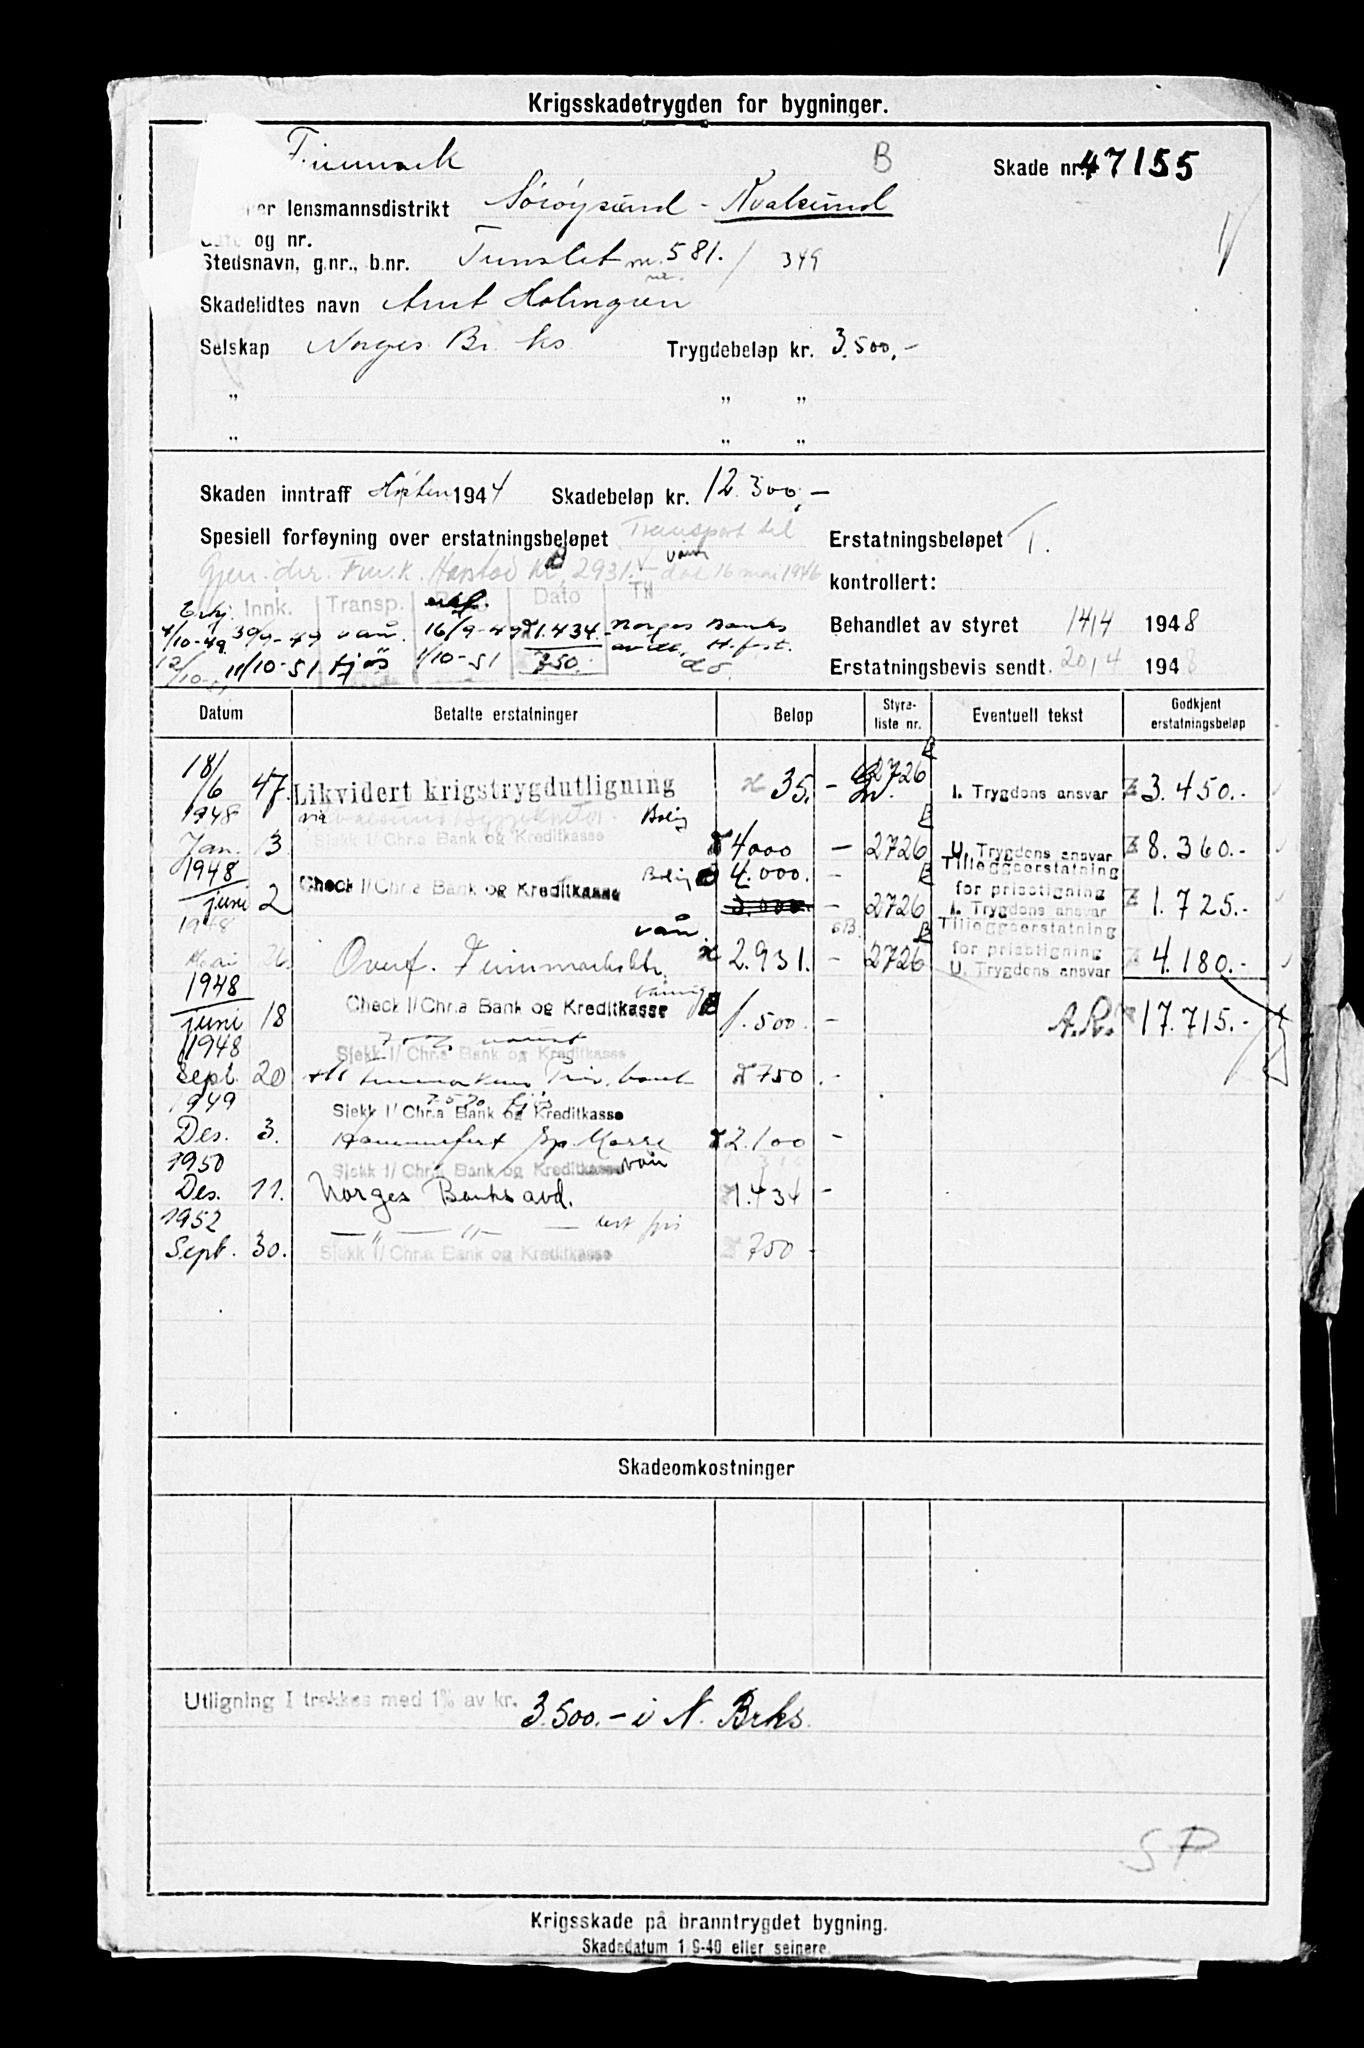 Krigsskadetrygden for bygninger.
Finnmark B Skade nr. 47155
eller lensmannsdistrikt Sørøysund - Kvalsund
Gate og nr.
Stedsnavn, g.nr., b.nr. nr. 581. / 349
Skadelidtes navn Arnt Holmgren
Selskap Norges Br. ks. Trygdebeløp kr. 3.500,-
" " "
" " "
Skaden inntraff Høsten 1944 Skadebeløp kr. 12.300,-
Spesiell forføyning over erstatningsbeløpet Transport til Erstatningsbeløpet T.
Gjen. dir. Fin.k. Harstad kr. 2931.- vån dat 16 mai 1946 kontrollert:
Innk. Transp. Dato Til
4/10-49 30/9-49 vån. 16/9-49 1.434.- Norges Banks Behandlet av styret 14/4 1948
avd. H.fest.
11/10-51 fjøs 1/10-51 750.- do. Erstatningsbevis sendt. 20/4 1948
Datum Betalte erstatninger Beløp Styre-liste nr. Eventuell tekst Godkjent erstatningsbeløp
18/6 47. Likvidert krigstrygdutligning 35.- 2726 I. Trygdens ansvar 3.450.-
1948 via Bolig
Jan. 3 Check l/ Chr.a Bank og Kreditkasse 4000 - 2726 U. Trygdens ansvar 8.360.-
1948 Bolig 4.000.-
juni 2 Check l/ Chr.a Bank og Kreditkasse 3.000.- 2726 Tilleggserstatning for prisstigning I. Trygdens ansvar 1.725.-
1948 vån
Mai 26 Overf. Finnmarkskt. 2.931.- 2726 Tilleggserstatning for prisstigning U. Trygdens ansvar 4.180.-
1948
juni 18 Check l/ Chr.a Bank og Kreditkasse 1.500.- 17.715.-
1948 Sjekk l/ Chr.a Bank og Kreditkasse
Sept. 20 750.-
1949 Sjekk l/ Chr.a Bank og Kreditkasse
Des. 3. Hammerfest Sp. 2.100 -
1950 Sjekk l/ Chr.a Bank og Kreditkasse vån
Des. 11. Norges Banks avd. 1.434 -
1952 — " — " —
Sept. 30. Sjekk l/ Chr.a Bank og Kreditkasse 750 -
Skadeomkostninger
Utligning I trekkes med 1% av kr. 3.500.- i N. Brks.
SP
Krigsskade på branntrygdet bygning.
Skadedatum 1/9-40 eller seinere